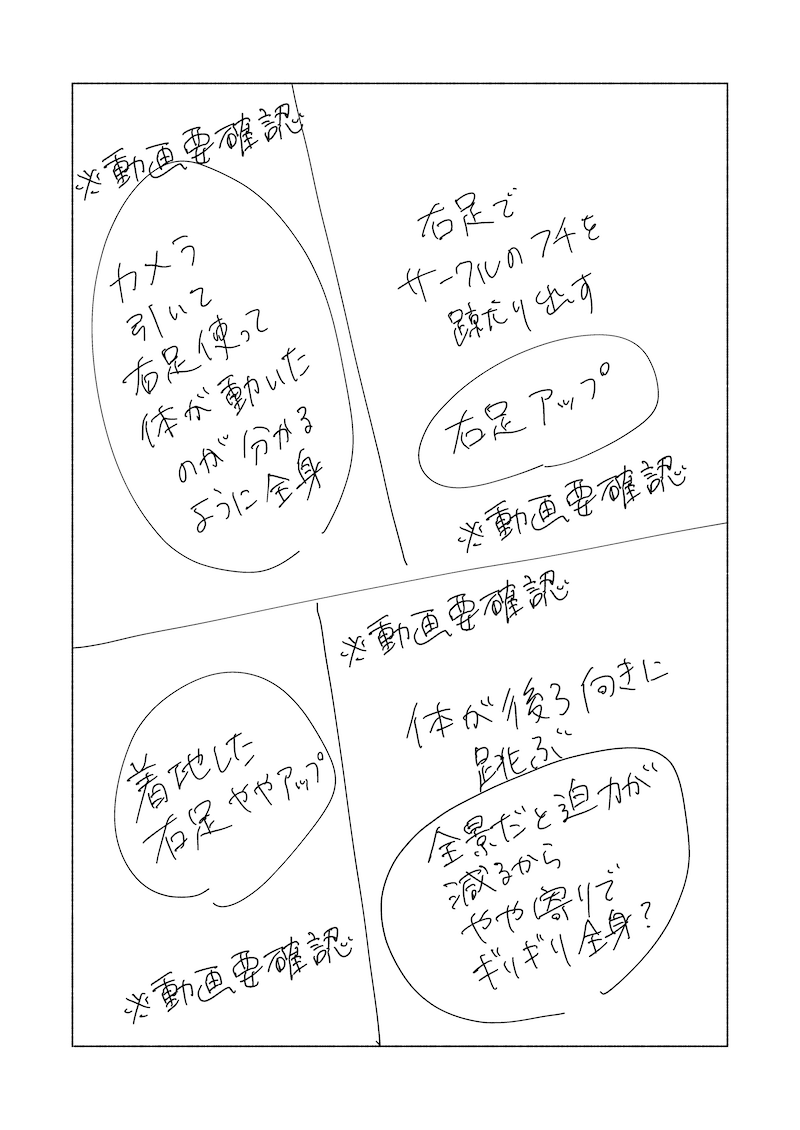 右足で
サークルのフチを
蹴り出す
右足アップ
※動画要確認
※動画要確認
カメラ
引いて
右足使って
体が動いた
のが分かる
ように全身
※動画要確認
体が後ろ向きに
跳ぶ
全景だと迫力が
減るから
やや寄りで
ギリギリ全身?
着地した
右足ややアップ
※動画要確認